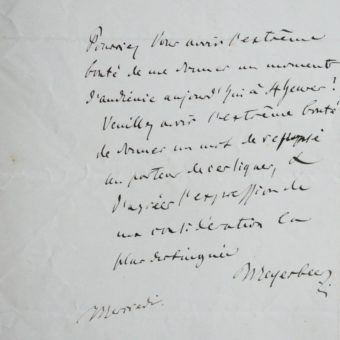 Pourriez Vous avoir l'extrême
bonté de me donner un moment
d'audience aujourd'hui à 4 heures?
Veuillez avoir l'extrême bonté
de donner un mot de reponse
au porteur de ces lignes, &
d'agréer l'expression de
ma considération la
plus distinguée
Meyerbeer
Mercredi.